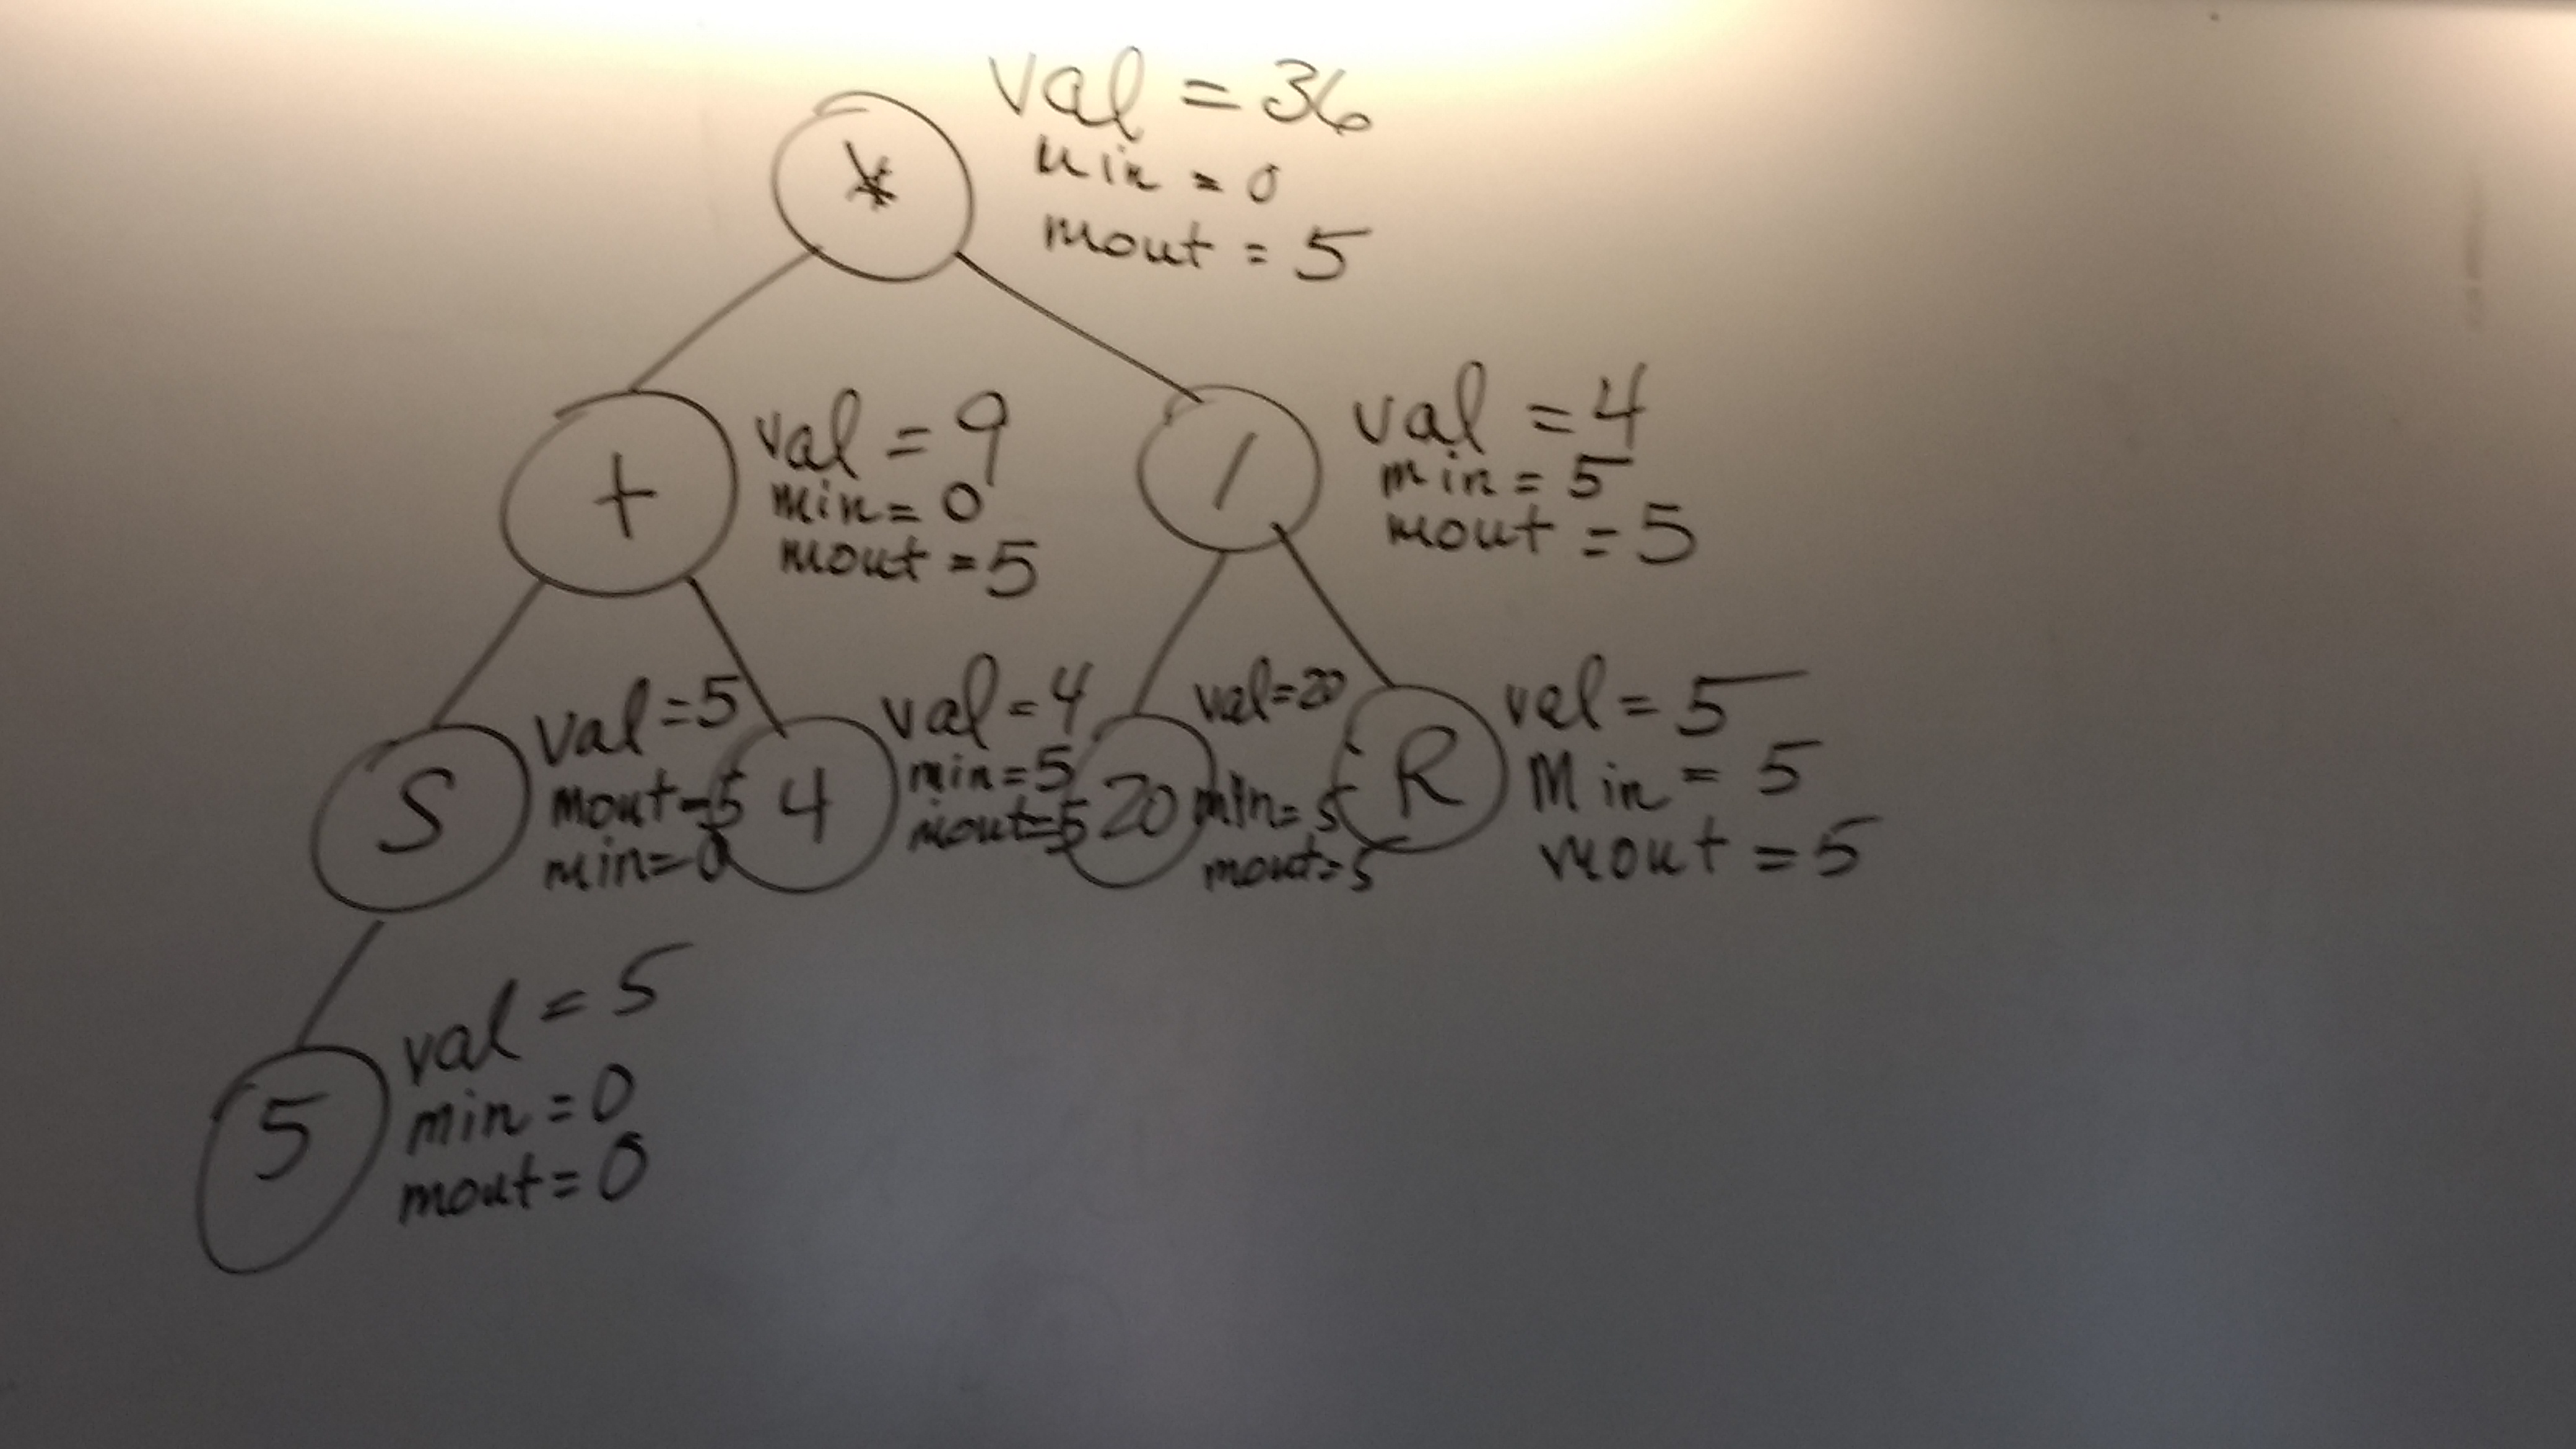 val = 36
*
min = 0
mout = 5
+
val = 9
min = 0
mout = 5
/
val = 4
min = 5
mout = 5
S
val = 5
mout = 5
min = 0
4
val = 4
min = 5
mout = 5
20
val = 20
min = 5
mout = 5
R
val = 5
Min = 5
mout = 5
5
val = 5
min = 0
mout = 0